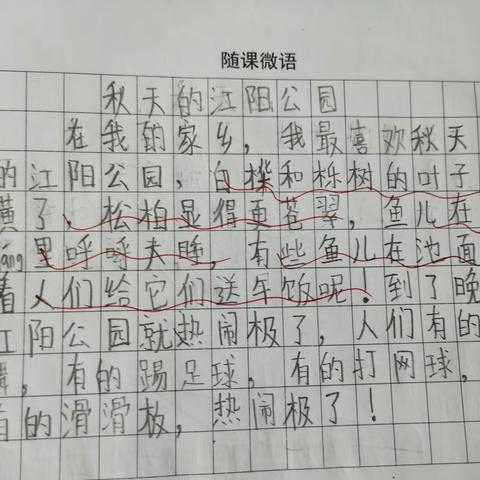 随课微语
秋天的江阳公园
在我的家乡，我最喜欢秋天
的江阳公园，白桦和栎树的叶子
黄了，松柏显得更苍翠，鱼儿在
áng里呼呼大睡，有些鱼儿在池面
着人们给它们送午饭呢！到了晚
江阳公园就热闹极了，人们有的
舞，有的踢足球，有的打网球，
有的滑滑板，热闹极了！